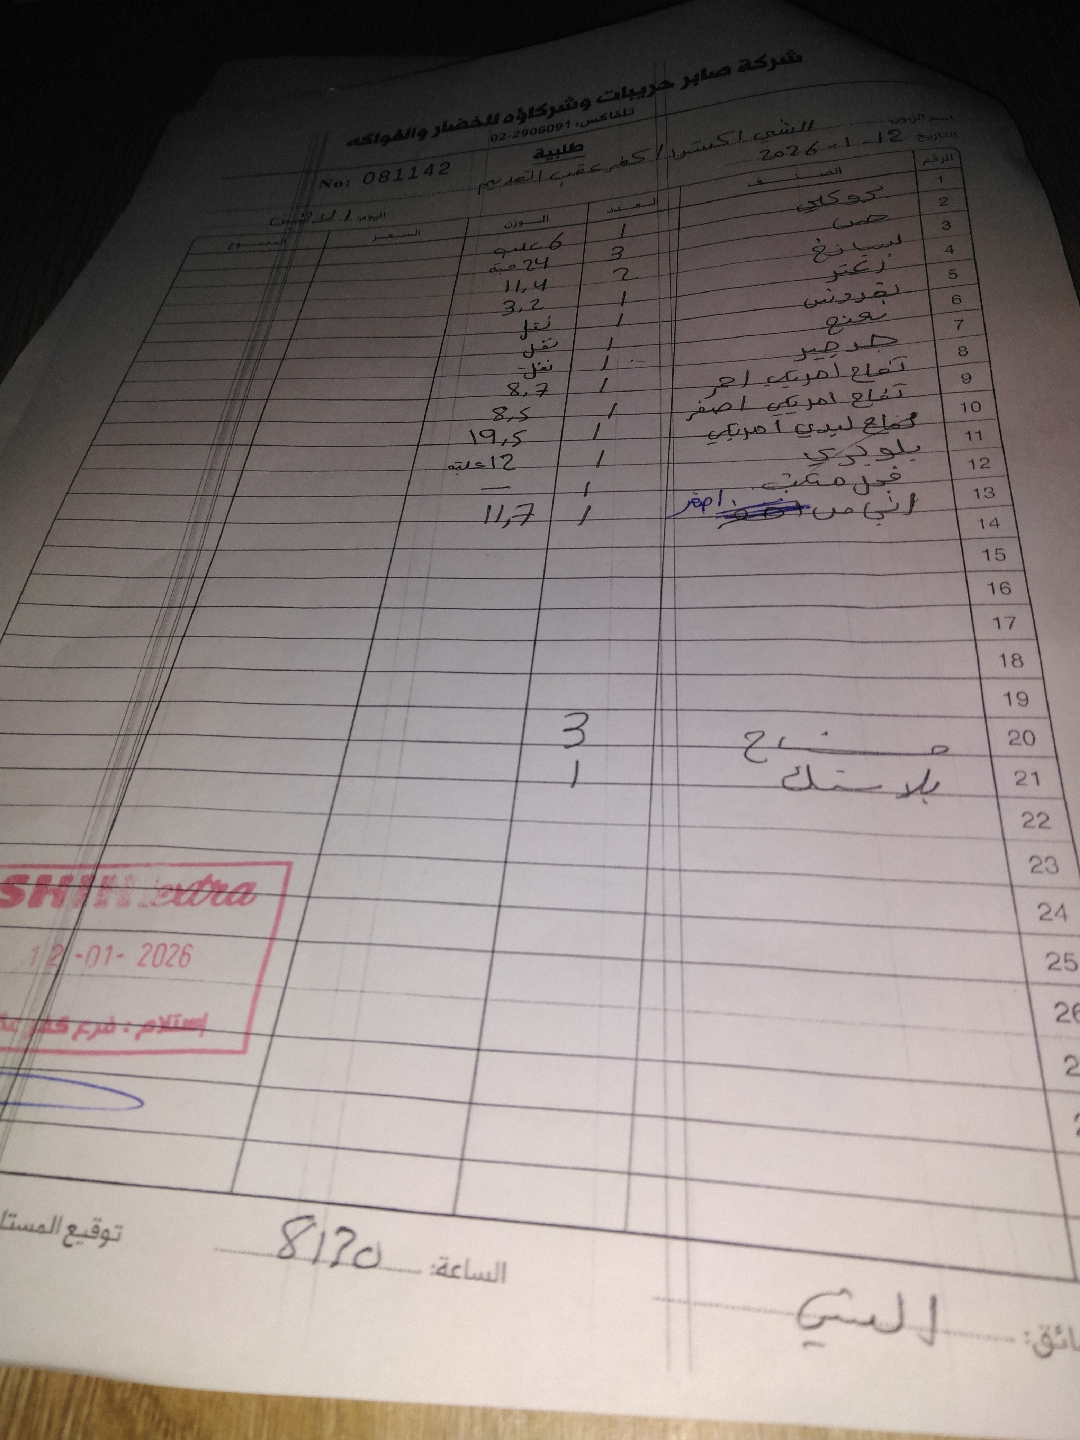 شركة صابر حريبات وشركاؤه للخضار والفواكه
تلفاكس: 02-2906091
طلبية
No: 081142
اسم الزبون: الشني اكسترا / كفر عقب القديم
التاريخ 12-1-2026
اليوم: الاثنين
الرقم الصنف العدد الوزن السعر المجموع
1 بروكلي 1 6 علبه
2 خس 3 24 حبه
3 سبانخ 2 11,4
4 زعتر 1 3,2
5 بقدونس 1 نقل
6 نعنع 1 نقل
7 جرجير 1 نقل
8 تفاح امريكي احمر 1 8,7
9 تفاح امريكي اصفر 1 8,5
10 تفاح ليدي امريكي 1 19,5
11 بلوبري 1 12 علبه
12 فجل مكتب 1 —
13 اصفر 1 11,7
14
15
16
17
18
19
20 مشاح 3
21 بلاستك 1
22
23
24
25
26
SHINI extra
12-01-2026
إستلام : فرع كفر عقب
الساعة: 8:30
توقيع المستل
ائق: الشني